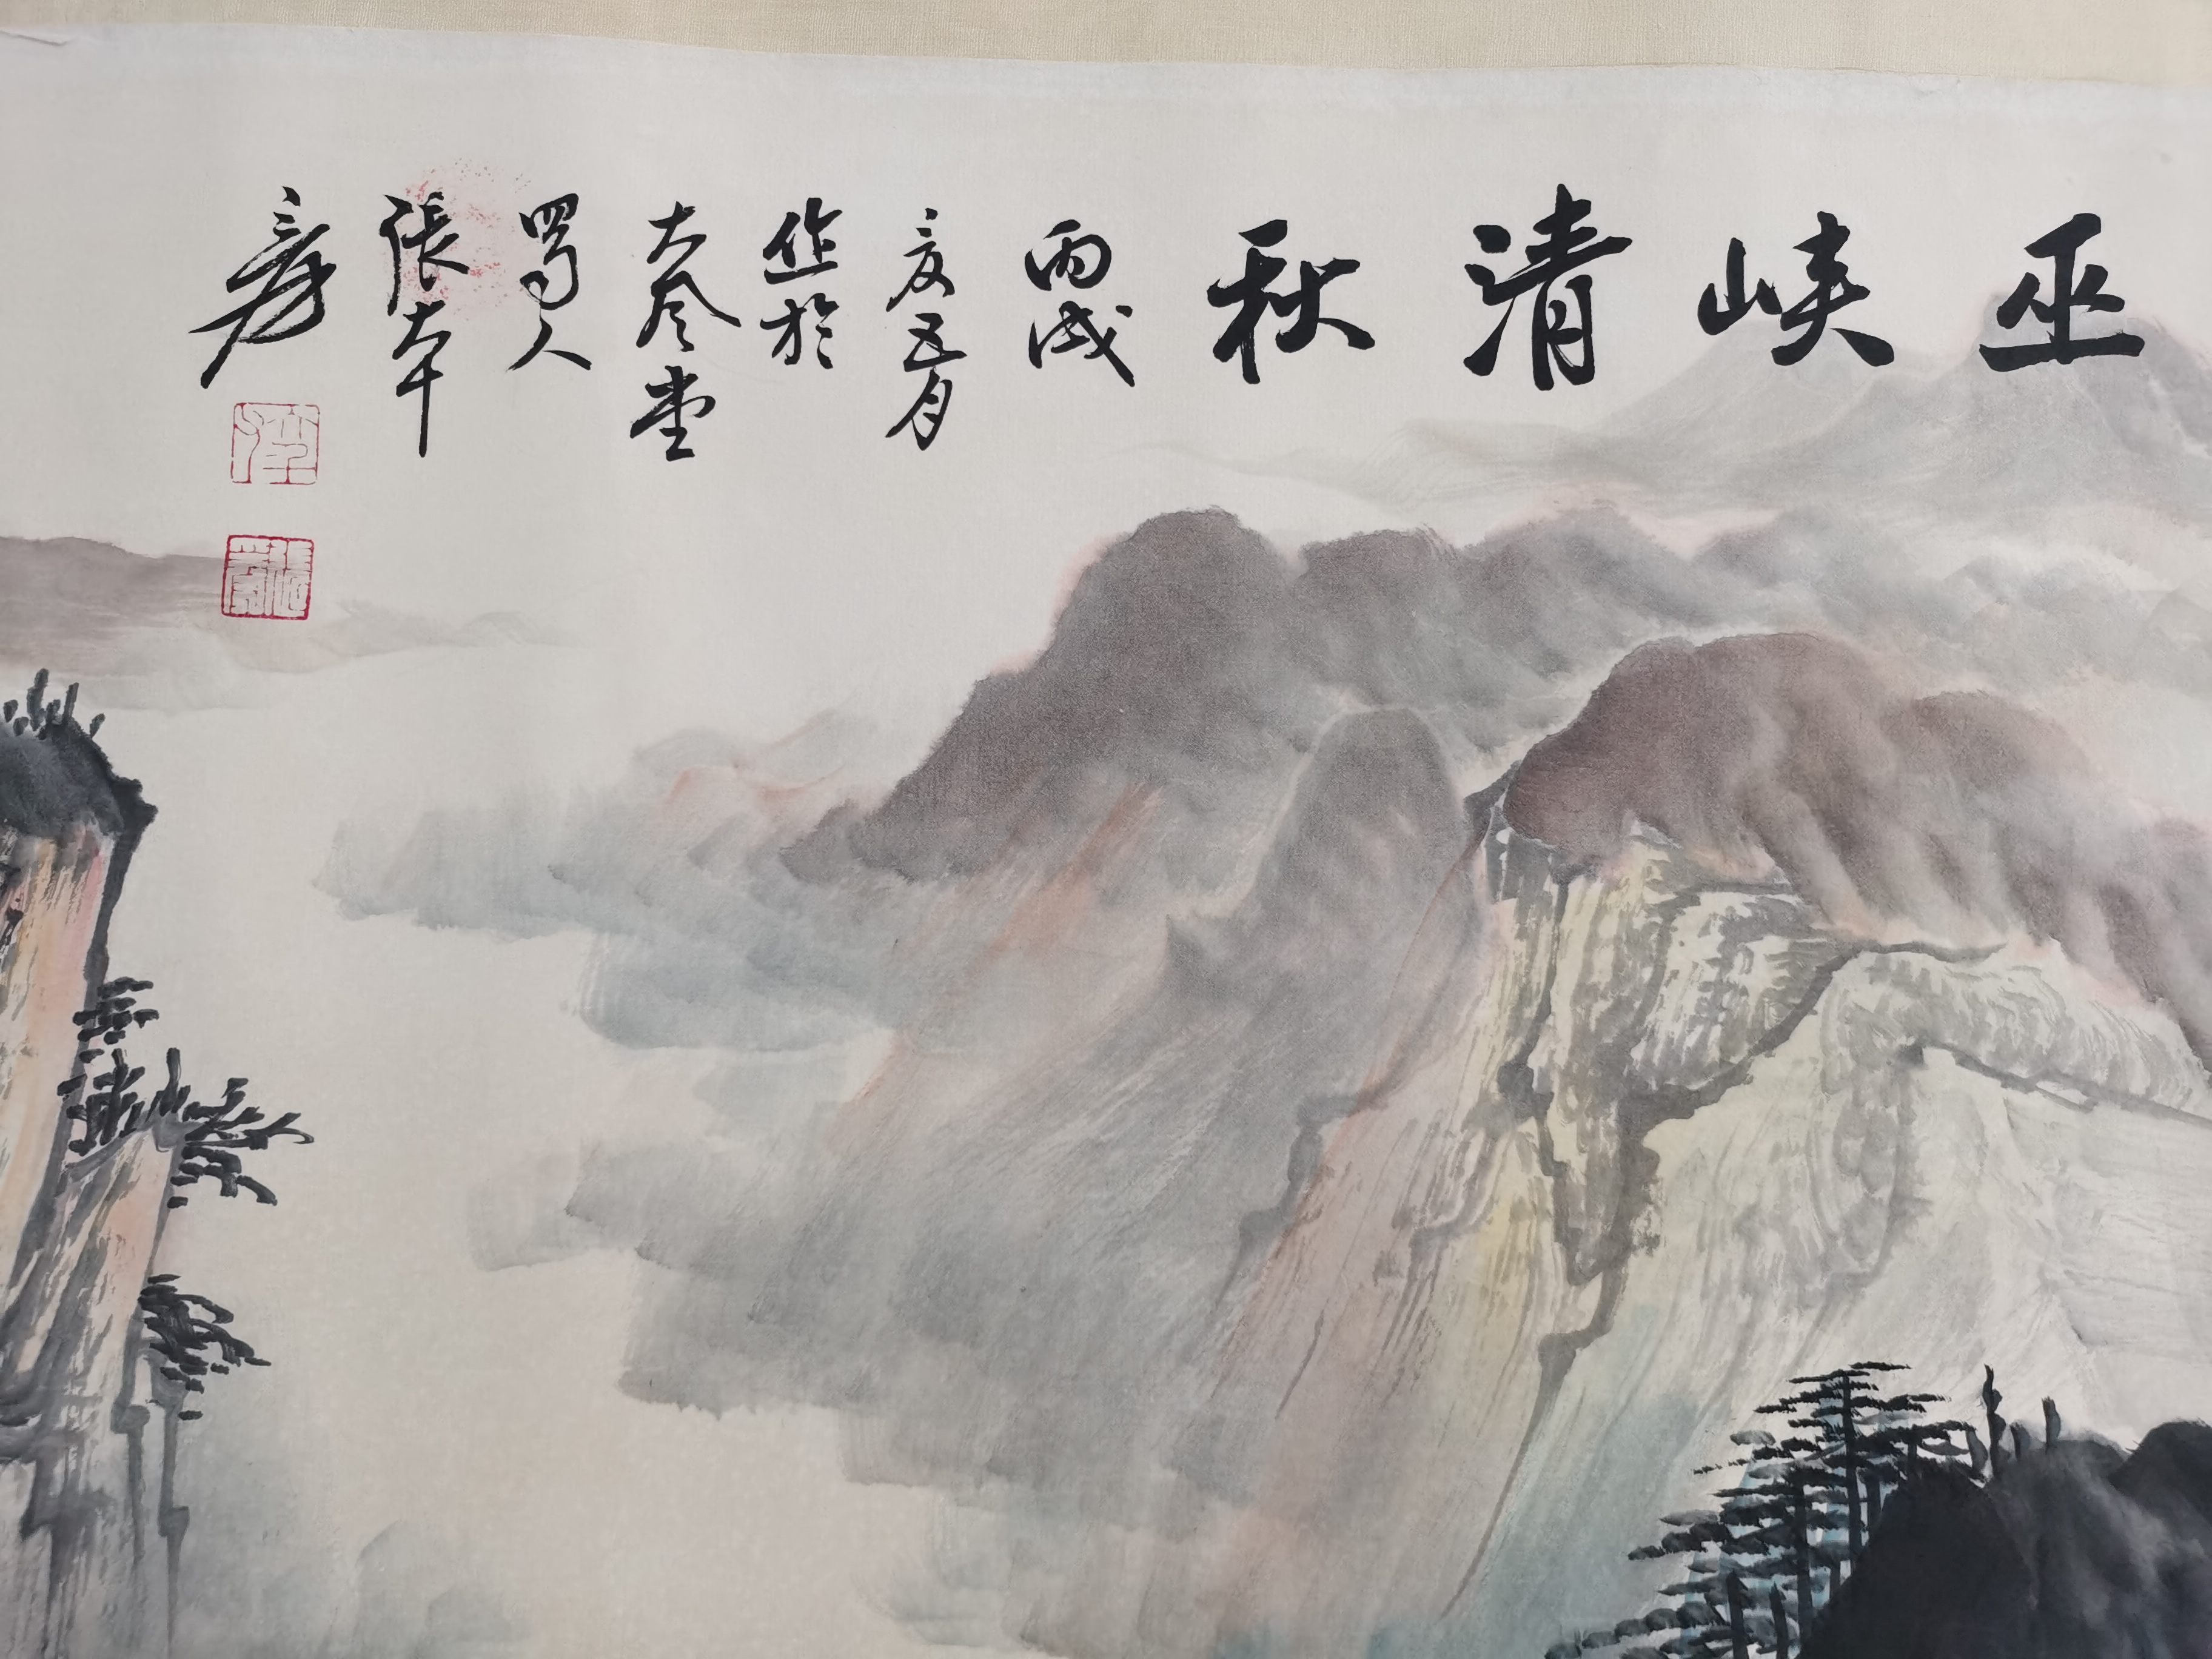 巫峽清秋
丙戌
夏五月
作於
大風堂
蜀人
張大千
爰